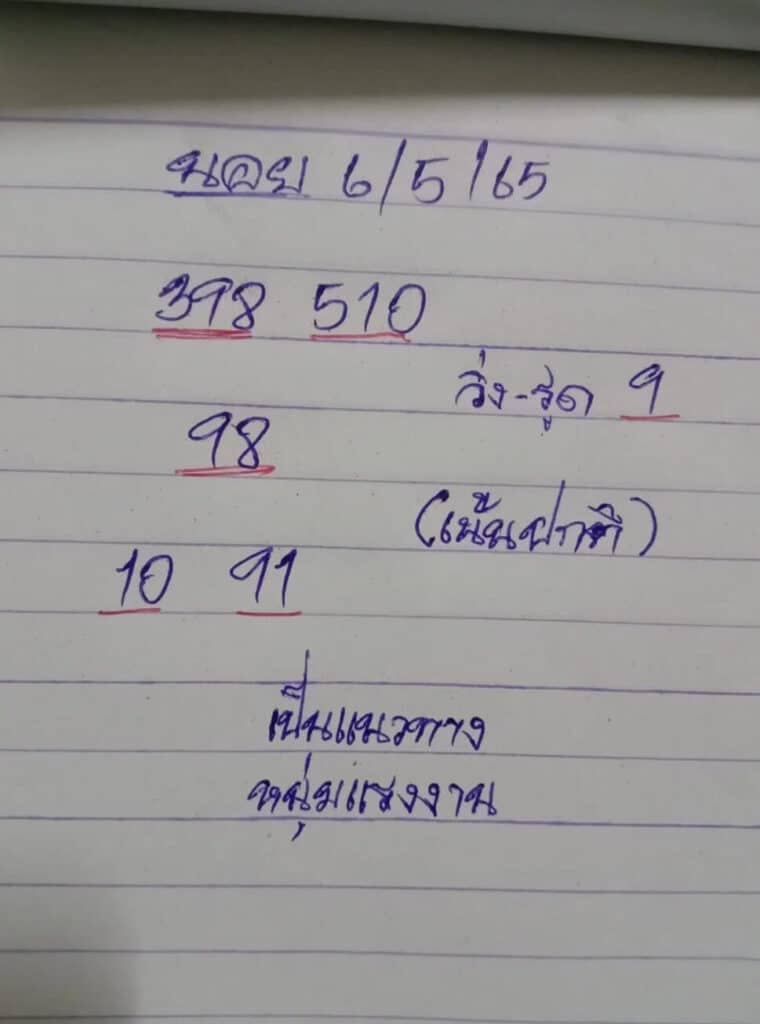 นอย 6/5/65
398 510
วิ่ง-รูด 9
98
(เน้นปกติ)
10 91
เป็นแนวทาง
หนุ่มแรงงาน